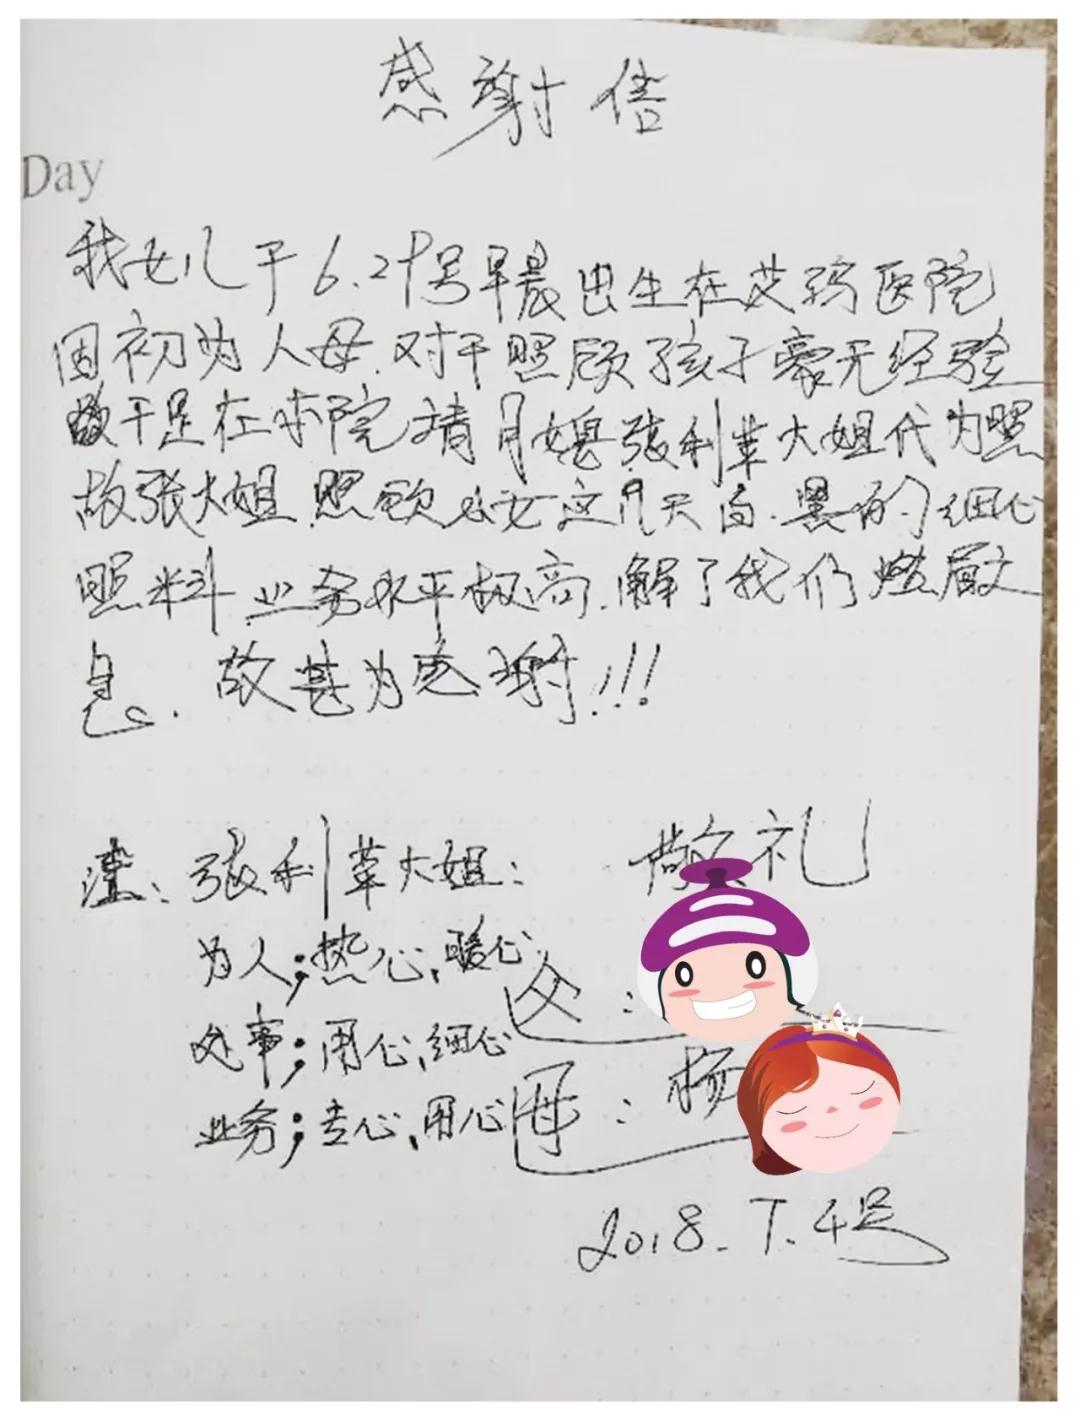 感谢信
Day
我女儿于6.29号早晨出生在艾玛医院
因初为人母.对于照顾孩子豪无经验
故于是在本院请月嫂张利苹大姐代为照
故张大姐.照顾小女这几天白.黑的细心
照料.业务水平极高.解了我们燃眉之
急.故甚为感谢!!!
注:张利苹大姐:
敬礼
为人;热心,暖心
父:
处事;用心,细心
母:杨
业务;专心,用心
2018.7.4号